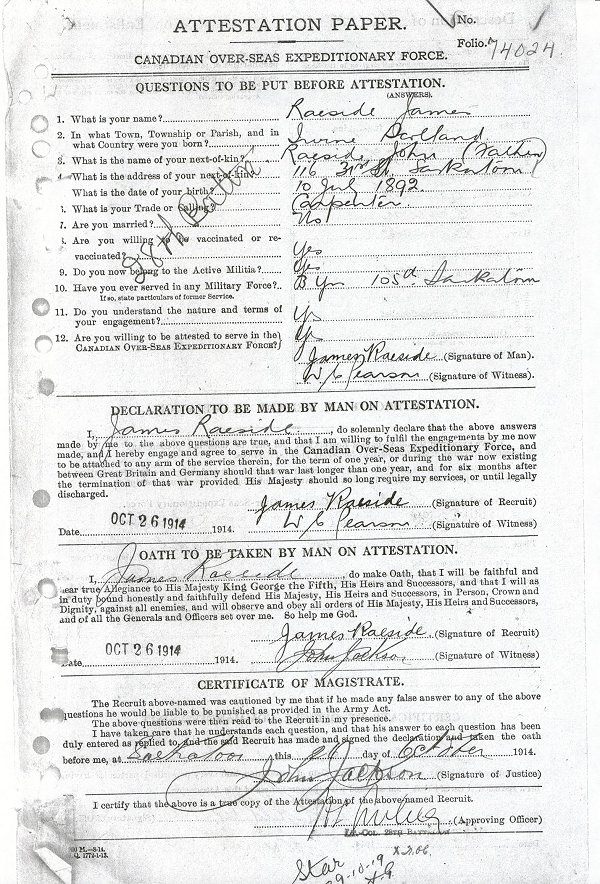 ATTESTATION PAPER.
No.
Folio.
74024
CANADIAN OVER-SEAS EXPEDITIONARY FORCE.
QUESTIONS TO BE PUT BEFORE ATTESTATION.
(ANSWERS).
1. What is your name? Raeside James
2. In what Town, Township or Parish, and in
what Country were you born? Irvine Scotland
3. What is the name of your next-of-kin? Raeside John (Father)
4. What is the address of your next-of-kin? 116 3rd St. Saskatoon
What is the date of your birth? 10 July 1892.
What is your Trade or Calling? Carpenter
7. Are you married? No
Are you willing to be vaccinated or re-
vaccinated? Yes
9. Do you now belong to the Active Militia? Yes
10. Have you ever served in any Military Force? 105th Saskatoon
If so, state particulars of former Service.
11. Do you understand the nature and terms of
your engagement? Yes
12. Are you willing to be attested to serve in the
CANADIAN OVER-SEAS EXPEDITIONARY FORCE? Yes
28th Battn
James Raeside (Signature of Man).
W C Pearson (Signature of Witness).
DECLARATION TO BE MADE BY MAN ON ATTESTATION.
I, James Raeside, do solemnly declare that the above answers
made by me to the above questions are true, and that I am willing to fulfil the engagements by me now
made, and I hereby engage and agree to serve in the Canadian Over-Seas Expeditionary Force, and
to be attached to any arm of the service therein, for the term of one year, or during the war now existing
between Great Britain and Germany should that war last longer than one year, and for six months after
the termination of that war provided His Majesty should so long require my services, or until legally
discharged.
James Raeside (Signature of Recruit)
Date OCT 26 1914 1914. W C Pearson (Signature of Witness)
OATH TO BE TAKEN BY MAN ON ATTESTATION.
I, James Raeside, do make Oath, that I will be faithful and
bear true Allegiance to His Majesty King George the Fifth, His Heirs and Successors, and that I will as
in duty bound honestly and faithfully defend His Majesty, His Heirs and Successors, in Person, Crown and
Dignity, against all enemies, and will observe and obey all orders of His Majesty, His Heirs and Successors,
and of all the Generals and Officers set over me. So help me God.
James Raeside (Signature of Recruit)
Date OCT 26 1914 1914. John Jackson (Signature of Witness)
CERTIFICATE OF MAGISTRATE.
The Recruit above-named was cautioned by me that if he made any false answer to any of the above
questions he would be liable to be punished as provided in the Army Act.
The above questions were then read to the Recruit in my presence.
I have taken care that he understands each question, and that his answer to each question has been
duly entered as replied to, and the said Recruit has made and signed the declaration and taken the oath
before me, at Saskatoon this 26 day of October 1914.
John Jackson (Signature of Justice)
I certify that the above is a true copy of the Attestation of the above-named Recruit.
(Approving Officer)
Lt.-Col. 28th Battalion
M.-8-14.
Q. 1772-1-13.
Star
29-10-19